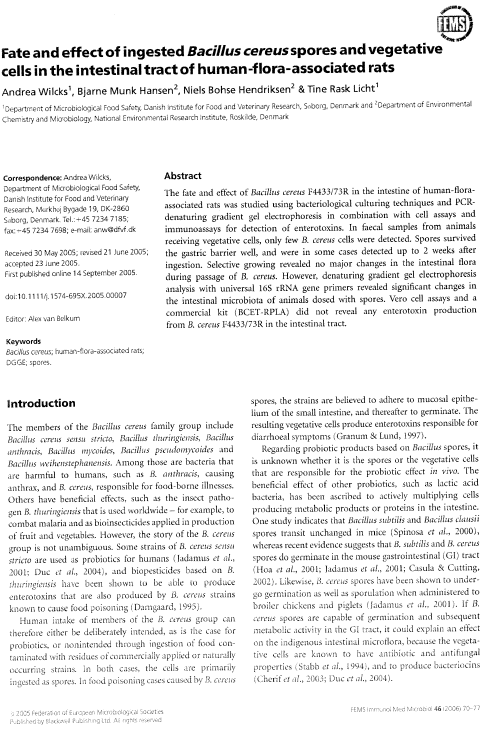 FEMS
Fate and effect of ingested Bacillus cereus spores and vegetative
cells in the intestinal tract of human-flora-associated rats
Andrea Wilcks1, Bjarne Munk Hansen2, Niels Bohse Hendriksen2 & Tine Rask Licht1
1Department of Microbiological Food Safety, Danish Institute for Food and Veterinary Research, Søborg, Denmark and 2Department of Environmental
Chemistry and Microbiology, National Environmental Research Institute, Roskilde, Denmark
Correspondence: Andrea Wilcks,
Department of Microbiological Food Safety,
Danish Institute for Food and Veterinary
Research, Mørkhøj Bygade 19, DK-2860
Søborg, Denmark. Tel.:+45 7234 7185;
fax: +45 7234 7698; e-mail: anw@dfvf.dk
Received 30 May 2005; revised 21 June 2005;
accepted 23 June 2005.
First published online 14 September 2005.
doi:10.1111/j.1574-695X.2005.00007
Editor: Alex van Belkum
Keywords
Bacillus cereus; human-flora-associated rats;
DGGE; spores.
Abstract
The fate and effect of Bacillus cereus F4433/73R in the intestine of human-flora-
associated rats was studied using bacteriological culturing techniques and PCR-
denaturing gradient gel electrophoresis in combination with cell assays and
immunoassays for detection of enterotoxins. In faecal samples from animals
receiving vegetative cells, only few B. cereus cells were detected. Spores survived
the gastric barrier well, and were in some cases detected up to 2 weeks after
ingestion. Selective growing revealed no major changes in the intestinal flora
during passage of B. cereus. However, denaturing gradient gel electrophoresis
analysis with universal 16S rRNA gene primers revealed significant changes in
the intestinal microbiota of animals dosed with spores. Vero cell assays and a
commercial kit (BCET-RPLA) did not reveal any enterotoxin production
from B. cereus F4433/73R in the intestinal tract.
Introduction
The members of the Bacillus cereus family group include
Bacillus cereus sensu stricto, Bacillus thuringiensis, Bacillus
anthracis, Bacillus mycoides, Bacillus pseudomycoides and
Bacillus weihenstephanensis. Among those are bacteria that
are harmful to humans, such as B. anthracis, causing
anthrax, and B. cereus, responsible for food-borne illnesses.
Others have beneficial effects, such as the insect patho-
gen B. thuringiensis that is used worldwide – for example, to
combat malaria and as bioinsecticides applied in production
of fruit and vegetables. However, the story of the B. cereus
group is not unambiguous. Some strains of B. cereus sensu
stricto are used as probiotics for humans (Jadamus et al.,
2001; Duc et al., 2004), and biopesticides based on B.
thuringiensis have been shown to be able to produce
enterotoxins that are also produced by B. cereus strains
known to cause food poisoning (Damgaard, 1995).
Human intake of members of the B. cereus group can
therefore either be deliberately intended, as is the case for
probiotics, or nonintended through ingestion of food con-
taminated with residues of commercially applied or naturally
occurring strains. In both cases, the cells are primarily
ingested as spores. In food poisoning cases caused by B. cereus
spores, the strains are believed to adhere to mucosal epithe-
lium of the small intestine, and thereafter to germinate. The
resulting vegetative cells produce enterotoxins responsible for
diarrhoeal symptoms (Granum & Lund, 1997).
Regarding probiotic products based on Bacillus spores, it
is unknown whether it is the spores or the vegetative cells
that are responsible for the probiotic effect in vivo. The
beneficial effect of other probiotics, such as lactic acid
bacteria, has been ascribed to actively multiplying cells
producing metabolic products or proteins in the intestine.
One study indicates that Bacillus subtilis and Bacillus clausii
spores transit unchanged in mice (Spinosa et al., 2000),
whereas recent evidence suggests that B. subtilis and B. cereus
spores do germinate in the mouse gastrointestinal (GI) tract
(Hoa et al., 2001; Jadamus et al., 2001; Casula & Cutting,
2002). Likewise, B. cereus spores have been shown to under-
go germination as well as sporulation when administered to
broiler chickens and piglets (Jadamus et al., 2001). If B.
cereus spores are capable of germination and subsequent
metabolic activity in the GI tract, it could explain an effect
on the indigenous intestinal microflora, because the vegeta-
tive cells are known to have antibiotic and antifungal
properties (Stabb et al., 1994), and to produce bacteriocins
(Cherif et al., 2003; Duc et al., 2004).
© 2005 Federation of European Microbiological Societies
Published by Blackwell Publishing Ltd. All rights reserved
FEMS Immunol Med Microbiol 46 (2006) 70–77